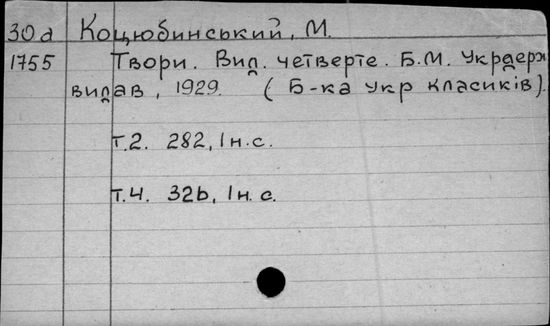 30д Коцюбинський, М.
1755 Твори. Вид. четверте. Б.М. Укрдерж
видав, 1929. (Б-ка укр класиків).
т.2. 282, Ін.с.
т.4. 326, Ін.с.